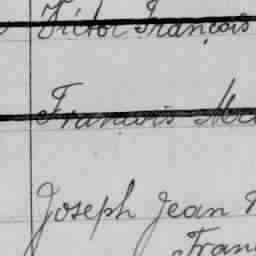 Victor François
François
Joseph Jean
Fran